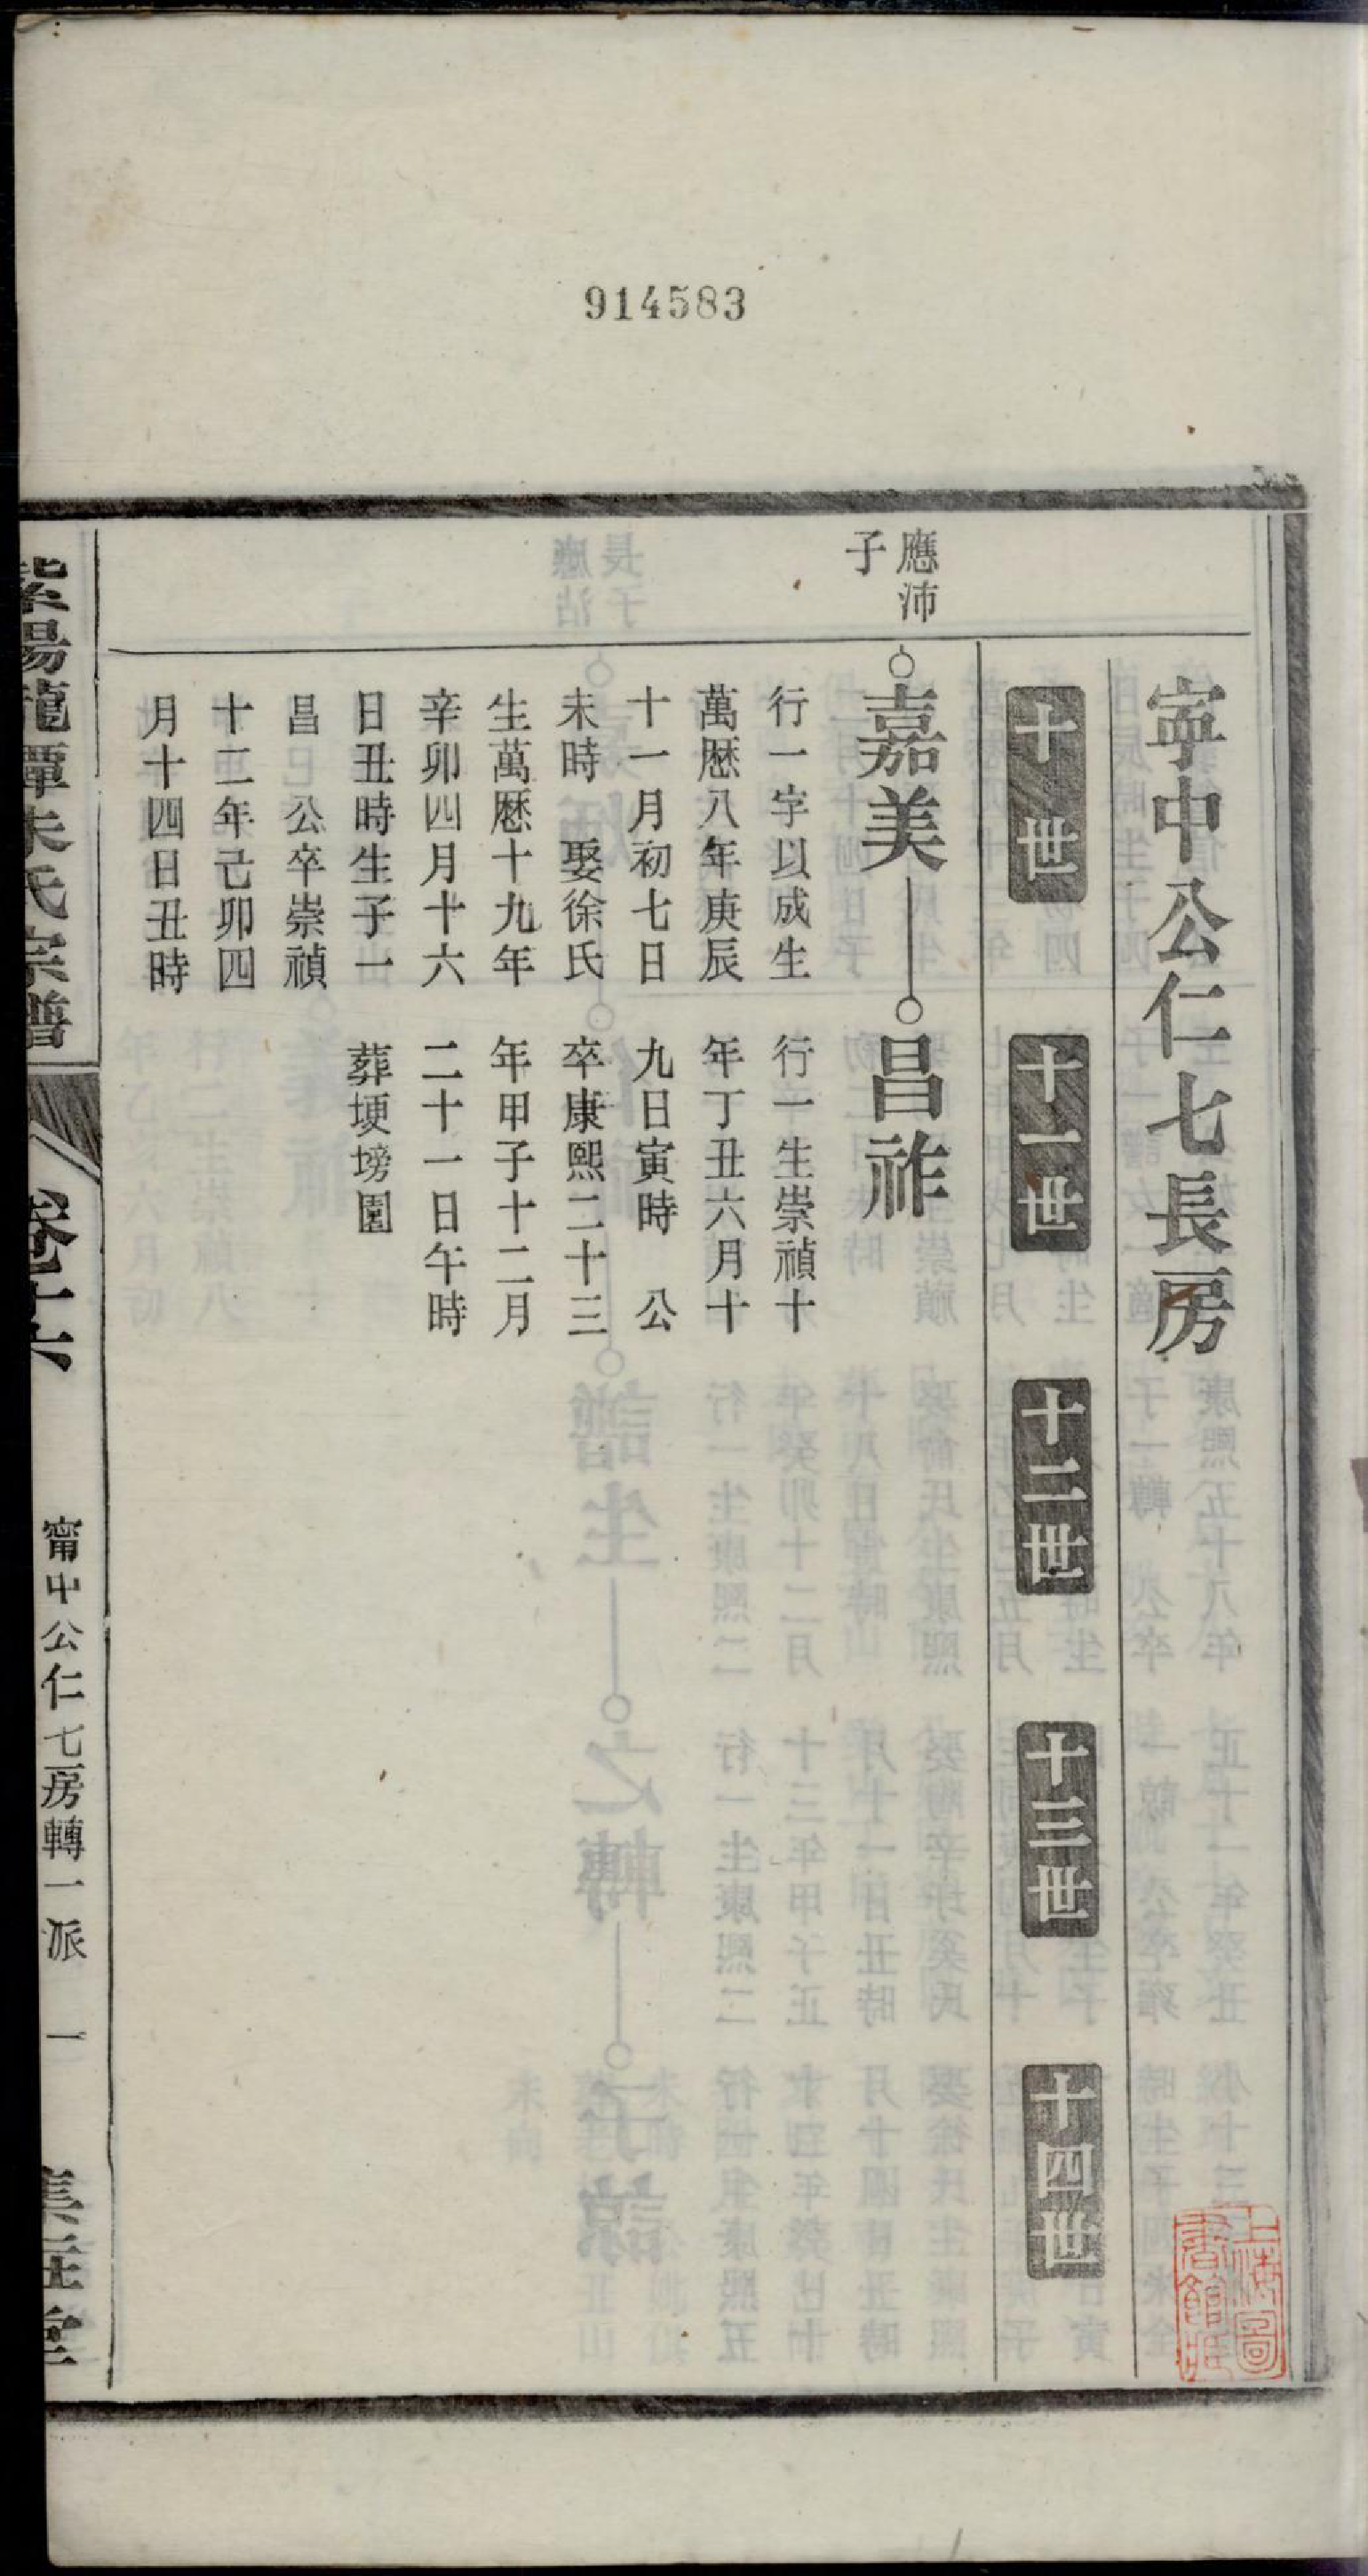 914583
甯中公仁七長房
十世
十一世
十二世
十三世
十四世
應沛
子
嘉美
行一字以成生
萬厯八年庚辰
十一月初七日
未時　娶徐氏
生萬厯十九年
辛卯四月十六
日丑時生子一
昌　公卒崇禎
十二年己卯四
月十四日丑時
昌祚
行一生崇禎十
年丁丑六月十
九日寅時　公
卒康熙二十三
年甲子十二月
二十一日午時
葬埂塝園
紫陽龍潭朱氏宗譜
卷十六
甯中公仁七房轉一派　一
上海圖
書館藏